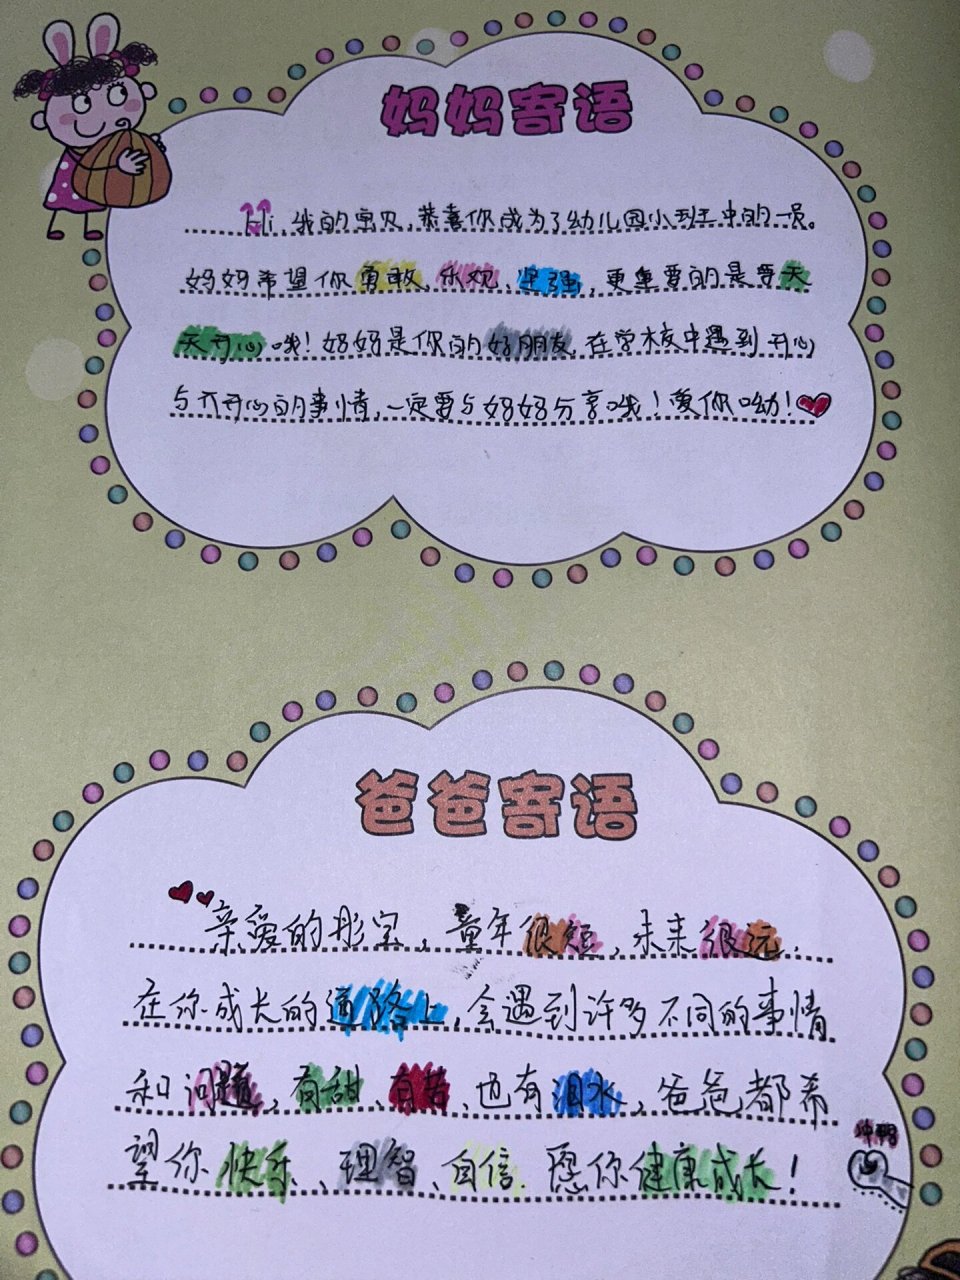 妈妈寄语
Hi,我的宝贝,恭喜你成为了幼儿园小班中的一员。
妈妈希望你勇敢、乐观、坚强,更重要的是要天
天开心哦!妈妈是你的好朋友,在学校中遇到开心
与不开心的事情,一定要与妈妈分享哦!爱你呦!
爸爸寄语
亲爱的彤宝,童年很短,未来很远.
在你成长的道路上,会遇到许多不同的事情
和问题,有甜、有苦、也有泪水,爸爸都希
望你快乐、理智、自信.愿你健康成长!